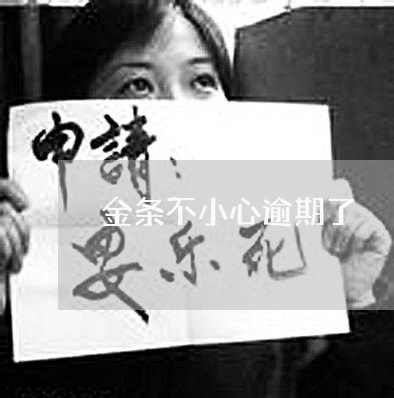 申請：
金条不小心逾期了
安乐死